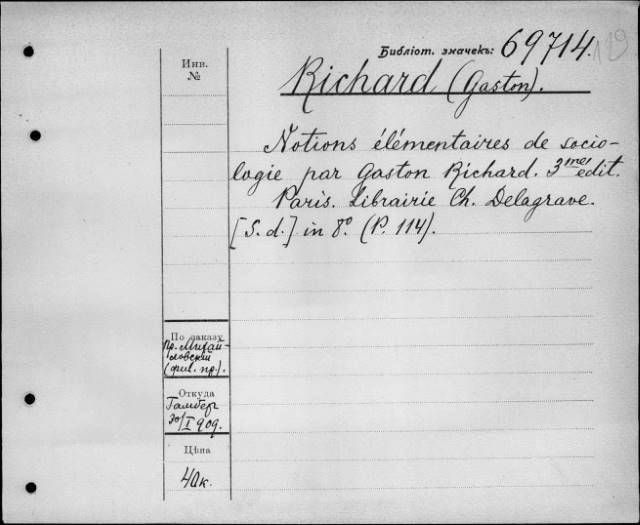 Библіот. значекъ: 69714. 119
Инв.
№
Richard (Gaston).
Notions élémentaires de socio-
logie par Gaston Richard. 3mes edit.
Paris. Librairie Ch. Delagrave.
[S. d.] in 8º. (P. 114).
По заказу
Пр. Михай-
ловскій
(фил. пр.).
Откуда
Гамбер
30/I 909.
Цѣна
40к.